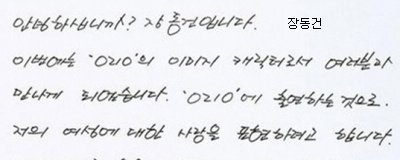 안녕하십니까? 장동건입니다. 장동건
이번에는 '0210'의 이미지 캐릭터로서 여러분과
만나게 되었습니다. '0210'에 출연하는 것으로
저의 여성에 대한 사랑을 표현하려고 합니다.